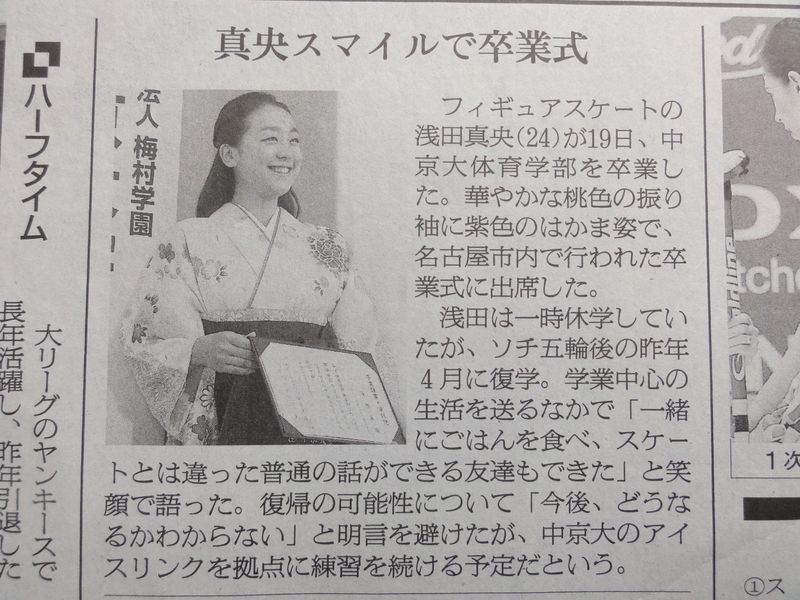 真央スマイルで卒業式
フィギュアスケートの
浅田真央(24)が19日、中
京大体育学部を卒業し
た。華やかな桃色の振り
袖に紫色のはかま姿で、
名古屋市内で行われた卒
業式に出席した。
浅田は一時休学してい
たが、ソチ五輪後の昨年
4月に復学。学業中心の
生活を送るなかで「一緒
にごはんを食べ、スケー
トとは違った普通の話ができる友達もできた」と笑
顔で語った。復帰の可能性について「今後、どうな
るかわからない」と明言を避けたが、中京大のアイ
スリンクを拠点に練習を続ける予定だという。
法人 梅村学園
ハーフタイム
大リーグのヤンキースで
長年活躍し、昨年引退した
1次
①ス